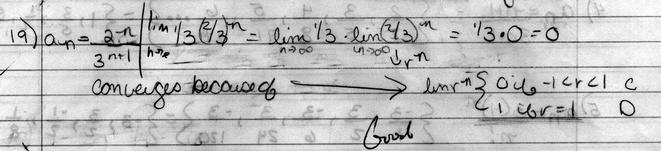 19) aₙ = 2⁻ⁿ / 3ⁿ⁺¹ | lim n→∞ 1/3 (2/3)⁻ⁿ = lim n→∞ 1/3 · lim n→∞ (2/3)⁻ⁿ = 1/3 · 0 = 0
↓ rⁿ
converges because of → lim rⁿ { 0 if -1<r<1 C
{ 1 if r=1 D
Good